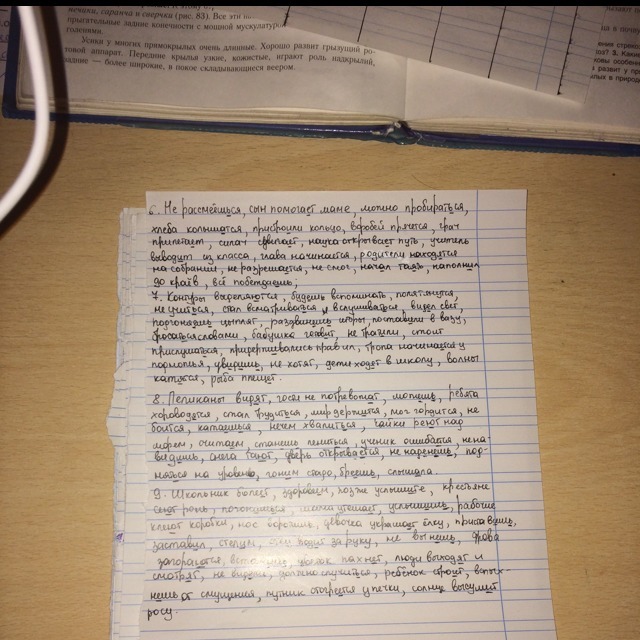 мечики, саранча и сверчки (рис. 83). Все эти
прыгательные задние конечности с мощной мускулатурой
голенями.
Усики у многих прямокрылых очень длинные. Хорошо развит грызущий ро-
товой аппарат. Передние крылья узкие, кожистые, играют роль надкрылий,
задние — более широкие, в покое складывающиеся веером.
6. Не рассмеёшься, сын помогает маме, можно пробираться,
хлеба колышатся, пристроили кольцо, воробей прячется, грач
прилетает, силач сдвигает, наука открывает путь, учитель
выводит из класса, глава начинается, родители находятся
на собрании, не разрешается, не смог, начал таять, наполнил
до краёв, всё победишь;
7. Контуры выделяются, будешь вспоминать, полятится,
не учиться, стал всматриваться и вслушиваться, видел свет,
погоняешь цыплят, раздвинешь шторы, поставили в вазу,
бросаться словами, бабушка гладит, не тратили, стоит
прислушаться, придерживались правил, тропа начинается у
подножья, увидишь, не хотят, дети ходят в школу, волны
катятся, рыба плещет.
8. Пеликаны видят, гости не потревожат, можешь, ребята
хороводятся, стал трудиться, мир держится, мог гордится, не
боится, катаешься, нечем хвалиться, чайки реют над
морем, считаем, станешь лениться, ученик ошибается, нена-
видишь, снега тают, дверь открывается, не наречёшь, под-
няться на уровень, гоним стадо, бреешь, слышала.
9. Школьник болеет, здоровеем, позже услышите, крестьяне
сеют рожь, положишься, утешает, услышишь, рабочие
клеют коробки, нос воротишь, девочка украшает ёлку, приставишь,
заставил, стелешь, водит за руку, не вынешь, дрова
загораются, пахнет, люди выходят и
смотрят, не видели, должно случиться, ребёнок строит, вспых-
нешь от смущения, путник отогреется у печки, солнце высушит
росу.